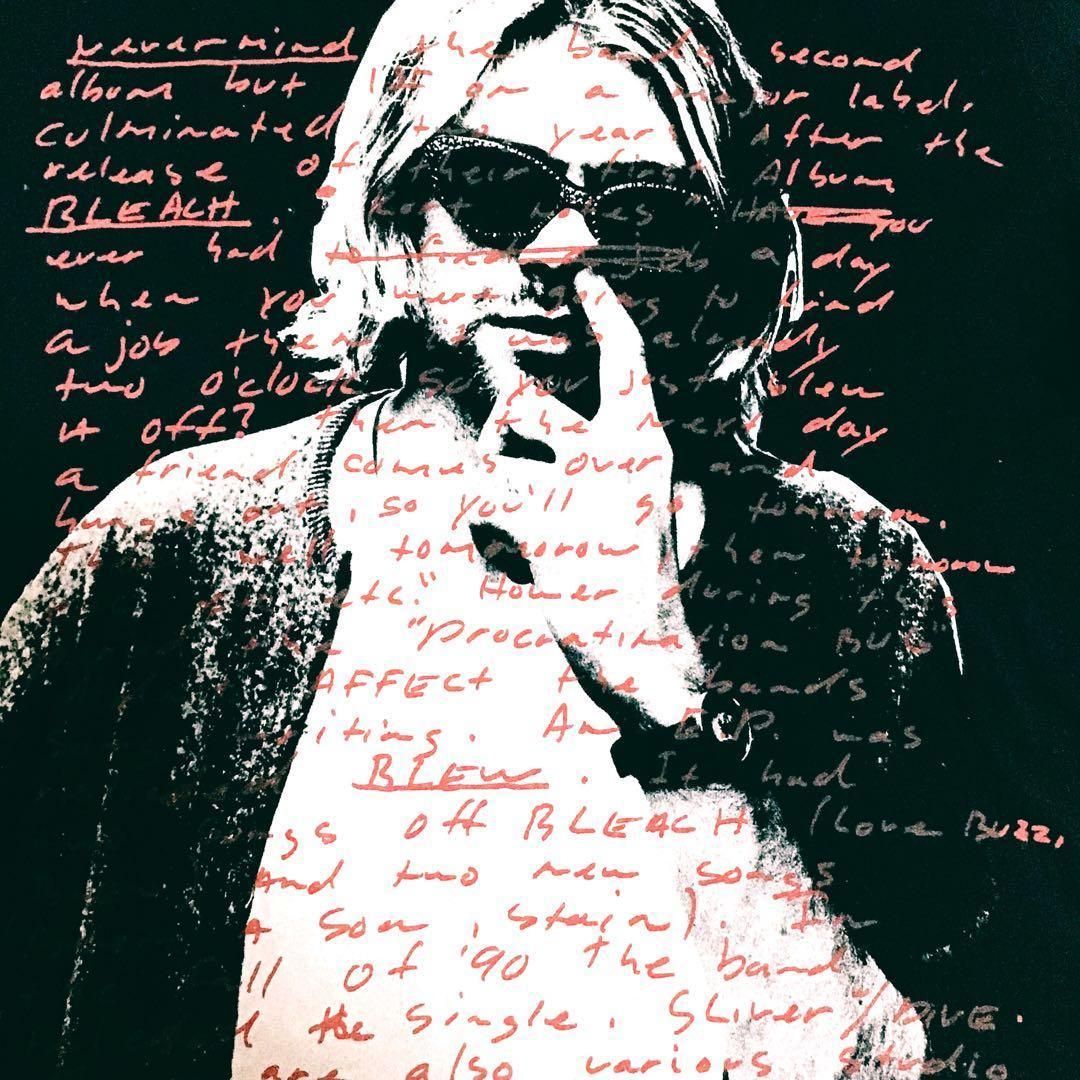 Nevermind the bands second
album but 1st on a major label.
culminated two years After the
release of their first Album
BLEACH. Kurt notes "HAVE you
ever had to find a job a day
when you were going to find
a job then it was already
two o'clock so you just blew
it off? then the next day
a friend comes over and
hungs out, so you'll go tomorrow.
well tomorrow, then tomorrow
etc." Hower during this
"Procratination BUG"
AFFECT the bands
iting. An E.P. was
BLEW. It had
ngs off BLEACH (Love Buzz,
And two new songs
A Son, Stain). In
ll of '90 the band
the Single. SLiver/DIVE.
are also various studio